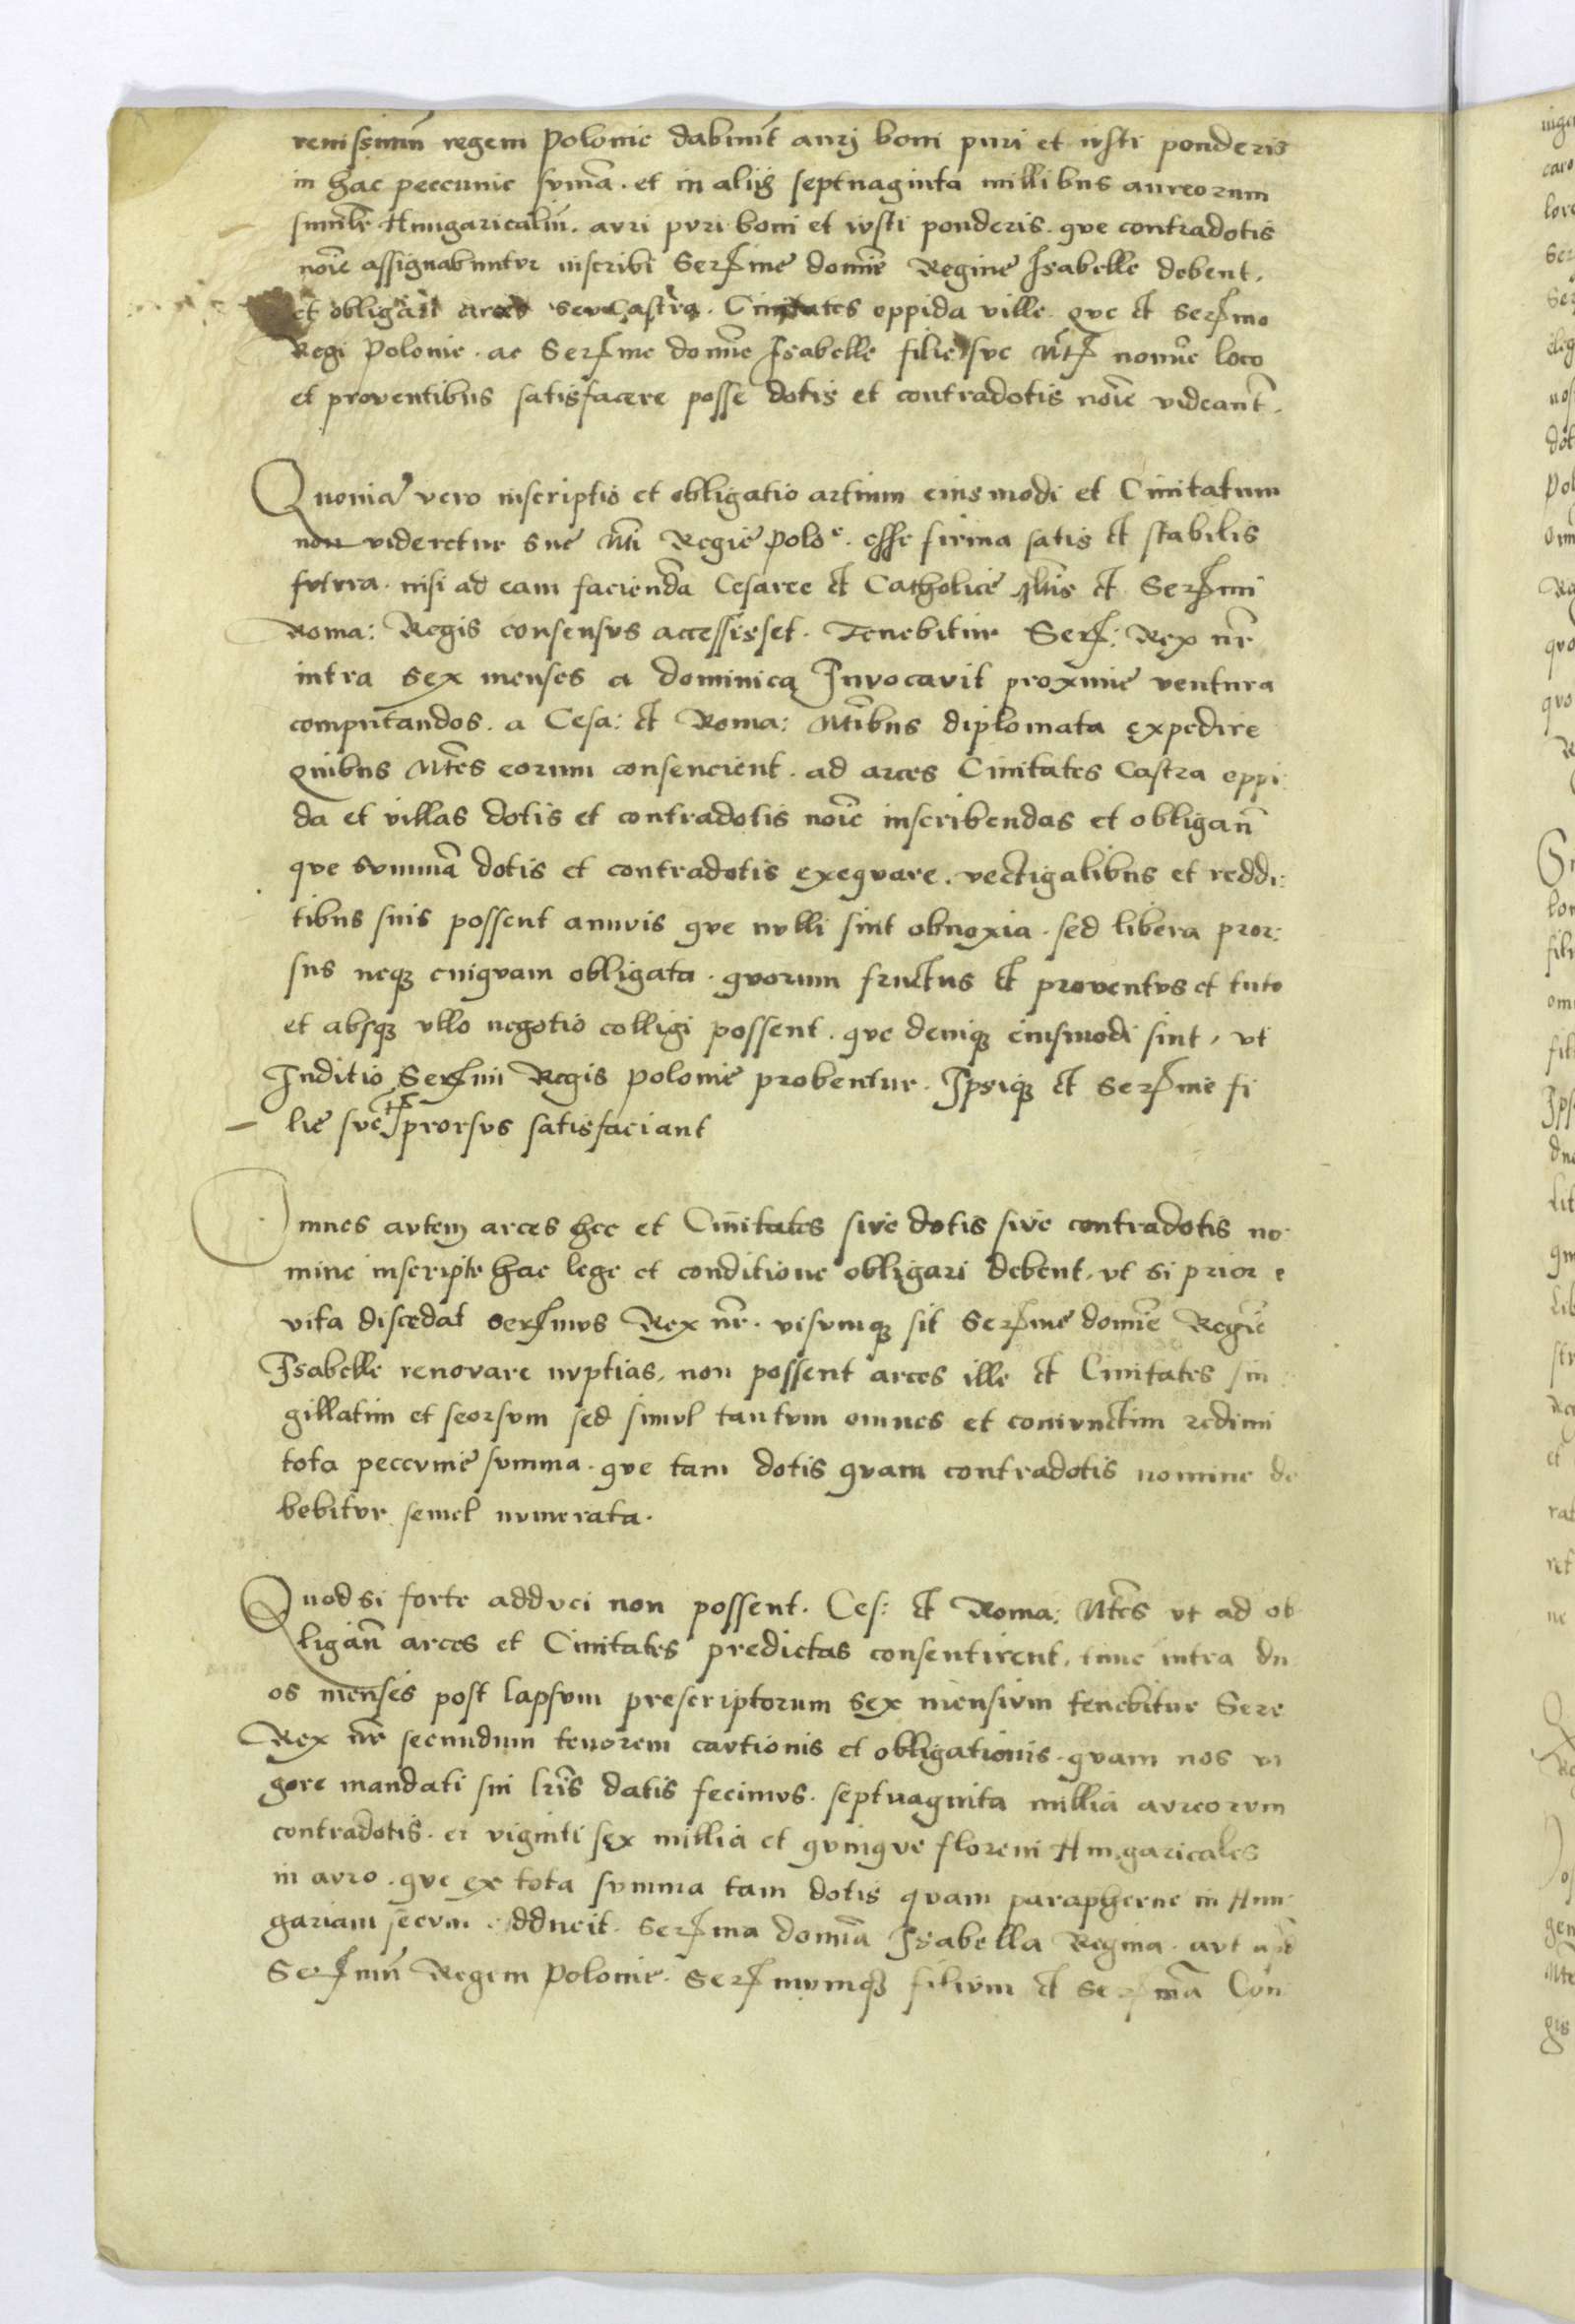 renissimū regem Polonie dabunt̄ aurj boni puri et iusti ponderis
in hac peccunie sum̄a. et in aliis septuaginta millibus aureorum
similr̄ Hungaricaliū. auri puri boni et iusti ponderis. que contradotis
noīe assignabuntur inscribi Serme domīe Regine Isabelle debent.
et obligāri arces seu Castra. Ciuitates oppida ville. que et Sermo
Regi Polonie. ac Serme domīe Isabelle filie sue loco
et proventibus satisfacere posse dotis et contradotis noīe videant̄.
Quoniā vero inscriptio et obligatio artium eiusmodi et Ciuitatum
non videretur sue Mti Regie Polōe. esse firma satis et stabilis
futura. nisi ad eam faciendā Cesaree et Catholice et Sermi
Roma: Regis consensus accessisset. Tenebitur Ser: Rex nr̄
intra sex menses a dominica Invocavit proxime ventura
computandos. a Cesa: et Roma: Mtībus diplomata expedire
Quibus Mtēs eorum consencient. ad arces Ciuitates Castra oppi:
da et villas dotis et contradotis noīe inscribendas et obligan̄
que summā dotis et contradotis exequare. vectigalibus et reddi:
tibus suis possent annuis que nulli sint obnoxia. sed libera pror:
sus neqȝ cuiquam obligata. quorum fructus et proventus et tuto
et absqȝ ullo negotio colligi possent. que deniqȝ eiusmodi sint, ut
Iuditio Sermi Regis Polonie probentur. Ipsiqȝ et Serme fi
lie sue prorsus satisfaciant
Omnes autem arces hee et Ciuitates sive dotis sive contradotis no
mine inscripte hac lege et conditione obligari debent. ut si prior e
vita discedat Sermus Rex nr̄. visumqȝ sit Serme domīe Regīe
Isabelle renovare nuptias, non possent arces ille et Ciuitates sin
gillatim et seorsum sed simul tantum omnes et coniunctim redimi
tota peccunie summa. que tam dotis quam contradotis nomine de
bebitur semel numerata.
Quod si forte adduci non possent. Ces: et Roma: Mtēs ut ad ob
ligan̄ arces et Ciuitates predictas consentirent, tunc intra du
os menses post lapsum prescriptorum sex mensium tenebitur Sere
Rex nr̄ secundum tenorem cautionis et obligationis. quam nos vi
gore mandati sui lrīs datis fecimus. septuaginta millia aureorum
contradotis. et viginti sex millia et quinque floreni Hungaricales
in auro. que ex tota summa tam dotis quam parapherne in Hun
gariam secum adducit. Serma domīa Isabella Regina. aut apd
Sermū Regem Polonie. Sermumqȝ filium et Sermā Con